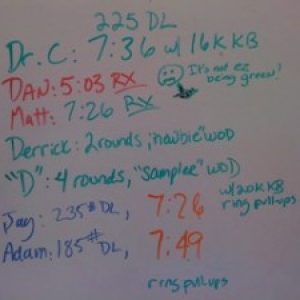 225 DL
Dr. C: 7:36 w/ 16K KB
DAN: 5:03 RX
It's not ez
being green!
Matt: 7:26 RX
Derrick: 2 rounds, "newbie" WOD
"D": 4 rounds, "sampler" WOD
Jay: 235# DL, 7:26 w/ 20K KB
ring pullups
Adam: 185# DL, 7:49
ring pullups